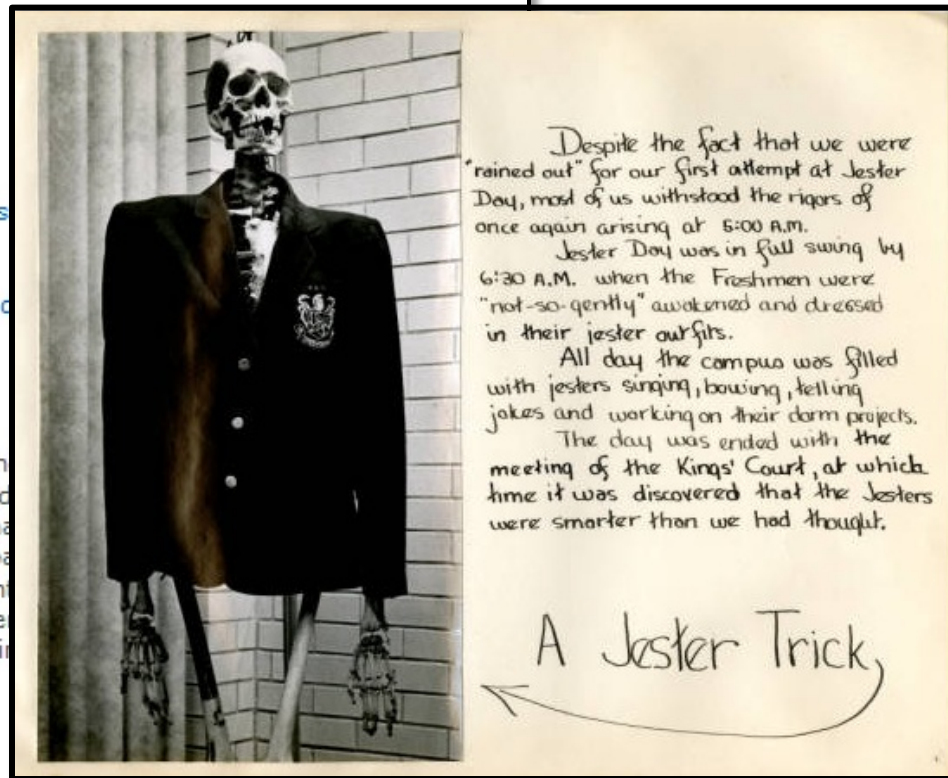 Despite the fact that we were
"rained out" for our first attempt at Jester
Day, most of us withstood the rigors of
once again arising at 5:00 A.M.
Jester Day was in full swing by
6:30 A.M. when the Freshmen were
"not-so-gently" awakened and dressed
in their jester outfits.
All day the campus was filled
with jesters singing, bowing, telling
jokes and working on their dorm projects.
The day was ended with the
meeting of the Kings' Court, at which
time it was discovered that the Jesters
were smarter than we had thought.
A Jester Trick